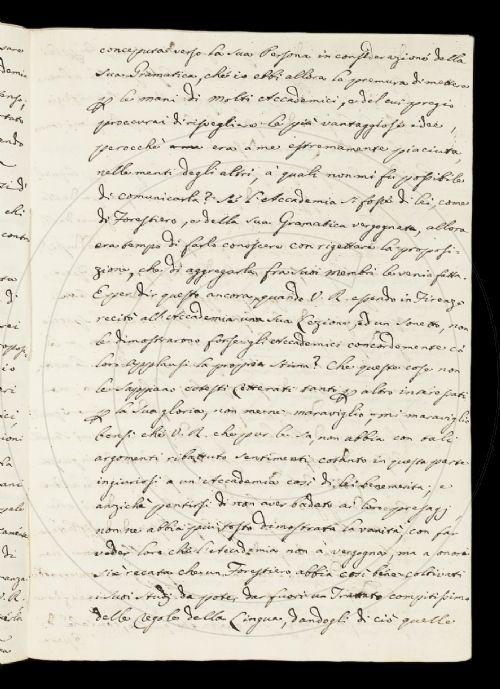 conceputa verso la sua Persona in considerazione della
sua Gramatica, che io ebbi allora la premura di mettere
p le mani di molti Accademici, e del cui pregio
procurai di risvegliare le più vantaggiose idee,
perocchè era a me estremamente piaciuta,
nelle menti degli altri, a' quali non mi fu possibile
di comunicarla? Se l'Accademia si fosse di lei, come
di Forestiero, e della sua Gramatica vergognata, allora
era tempo di farla conoscere con rigettare la proposi-
zione, che di aggregarla fra' suoi membri le venia fatta.
E per dir questo ancora, quando V. R. essendo in Firenze
recitò all'Accademia una sua Lezione, ed un Sonetto, non
le dimostrarono forse gli Accademici concordemente co'
loro applausi la propria stima? Che queste cose non
le sappiano cotesti Letterati tanto p altro interessati
p la sua gloria, non me ne maraviglio; mi maraviglio
bensì che V. R. che pur le sa, non abbia con tali
argomenti ribattuto sentimenti cotanto in questa parte
ingiuriosi a un'Accademia così di lei benemerita; e
anzichè pentirsi di non aver badato ai loro presagj
non ne abbia più tosto dimostrata la vanità, con far
veder loro che l'Accademia non a vergogna, ma a onore
si è recata che un Forestiero abbia così bene coltivati
i suoi studj da poter da fuori un Trattato compitissimo
delle Regole della Lingua, dandogli di ciò quelle